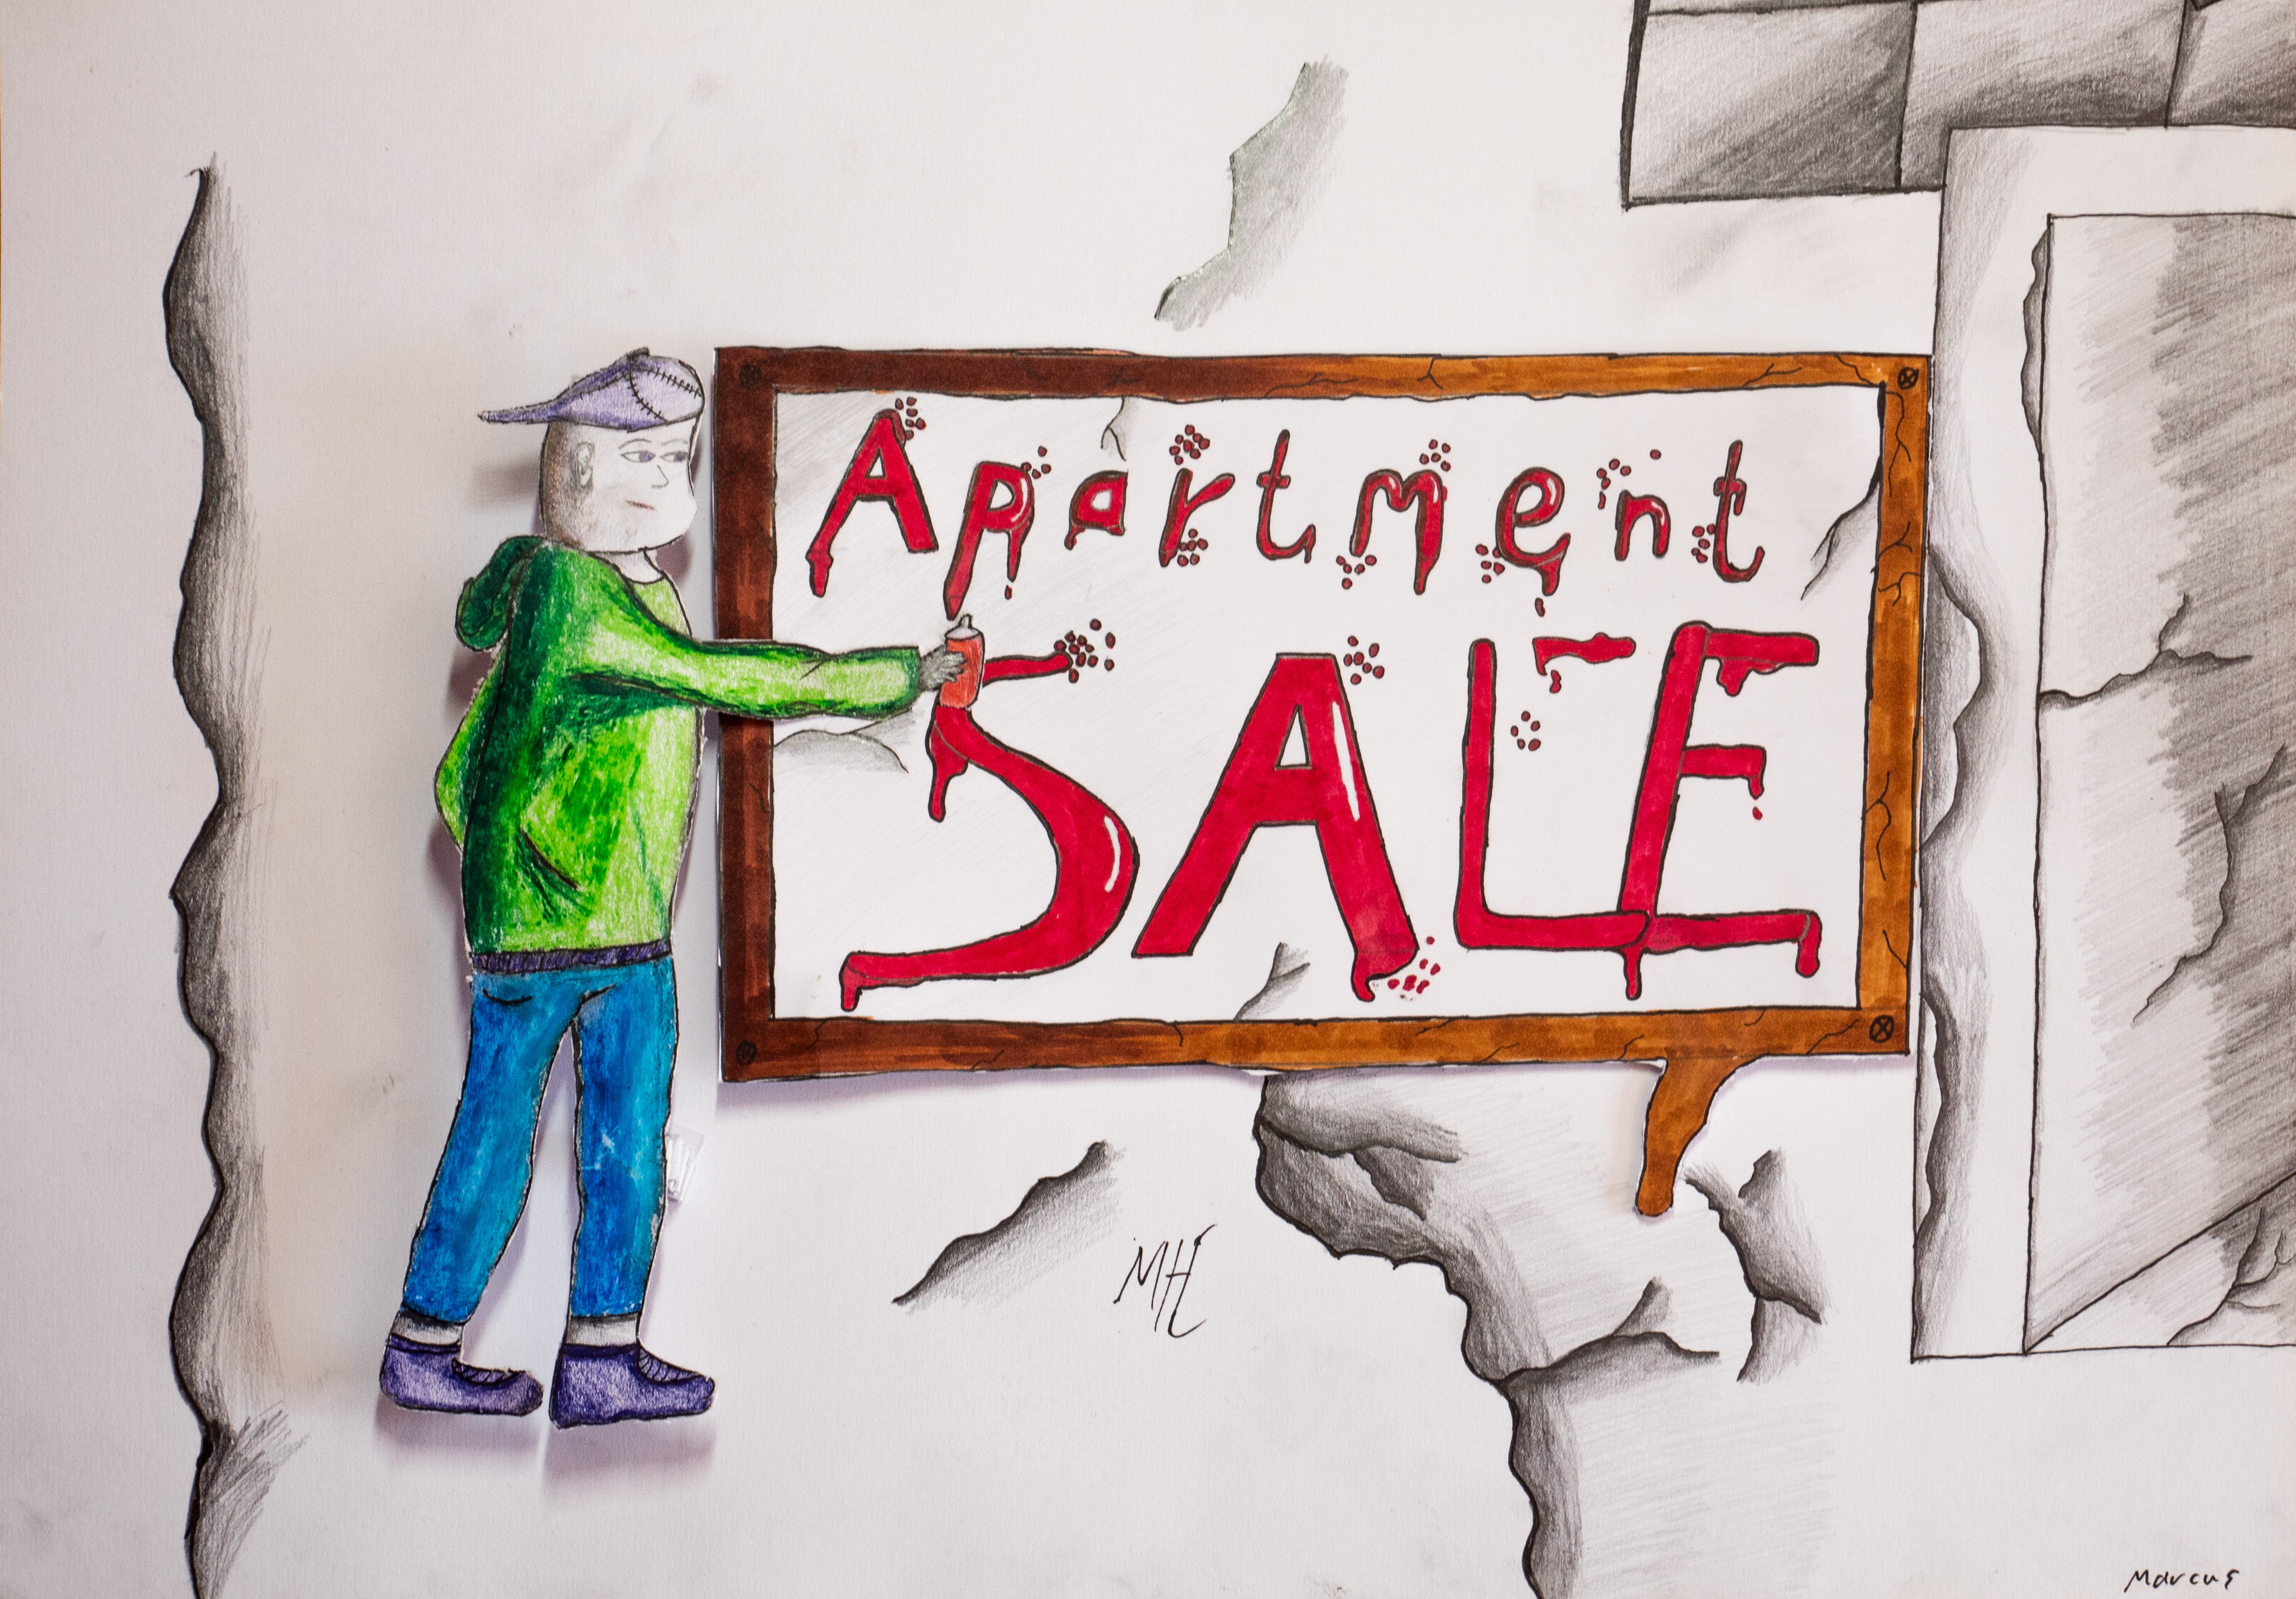 Apartment
SALE
MH
Marcus